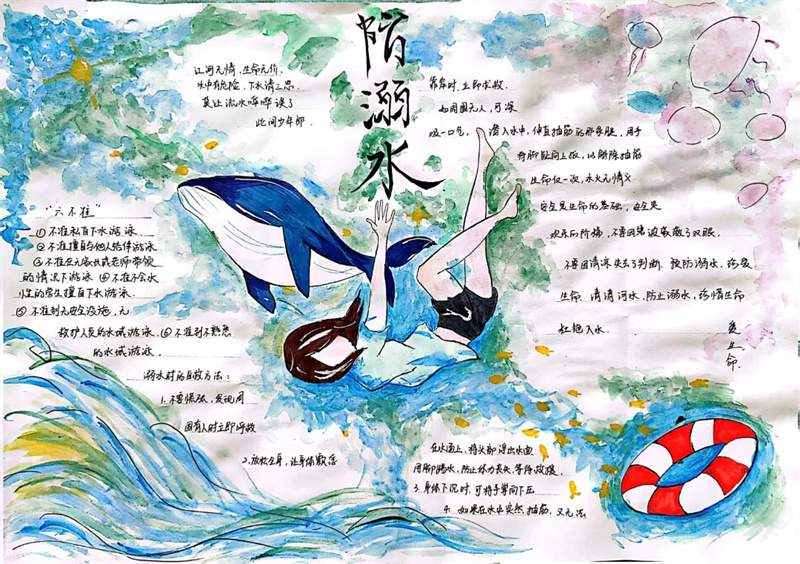 防溺水
江河无情，生命无价
水中有危险，下水请三思
莫让流水哗哗误了
此间少年郎
"六不准"
①不准私自下水游泳
②不准擅自与他人结伴游泳
③不准在无家长或老师带领
的情况下游泳 ④不准不会水
性的学生擅自下水游泳
⑤不准到无安全设施、无
救护人员的水域游泳 ⑥不准到不熟悉
的水域游泳
溺水时的自救方法：
1.不要慌张，发现周
围有人时立即呼救
2.放松全身，让身体飘浮
在水面上，将头部浮出水面
用脚踢水，防止体力丧失，等待救援
3.身体下沉时，可将手掌向下压
4.如果在水中突然抽筋，又无法
靠岸时，立即求救
如周围无人，可深
吸一口气，潜入水中，伸直抽筋的那条腿，用手
将脚趾向上扳，以解除抽筋
生命仅一次，水火无情义
安全是生命的基础，安全是
欢乐的阶梯，不要因绿波蒙蔽了双眼
不要因清凉失去了判断 预防溺水，珍爱
生命 清清河水，防止溺水，珍惜生命
拒绝入水
爱生命